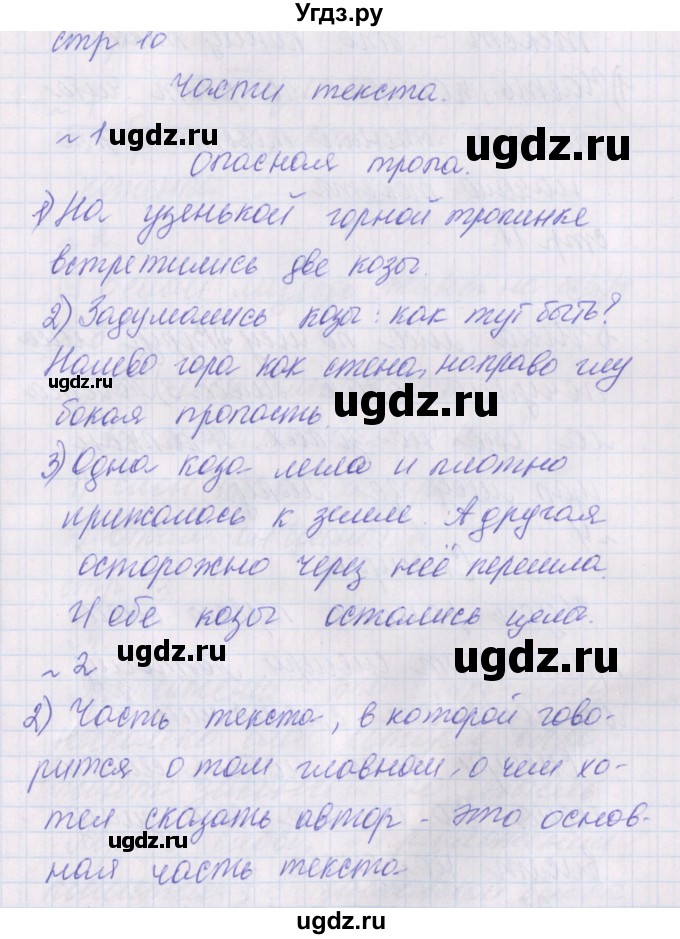 УгДЗ.ру
стр 10
Части текста.
ugdz.ru
ugdz.ru
~ 1
Опасная тропа.
1) На узенькой горной тропинке
встретились две козы.
2) Задумались козы: как тут быть?
Налево гора как стена, направо глу
ugdz.ru
ugdz.ru
бокая пропасть.
3) Одна коза легла и плотно
прижалась к земле. А другая
осторожно через неё перешла.
И обе козы остались целы.
ugdz.ru
ugdz.ru
~ 2
2) Часть текста, в которой гово-
рится о том главном, о чем хо-
тел сказать автор - это основ-
ugdz.ru
ugdz.ru
ная часть текста
ugdz.ru